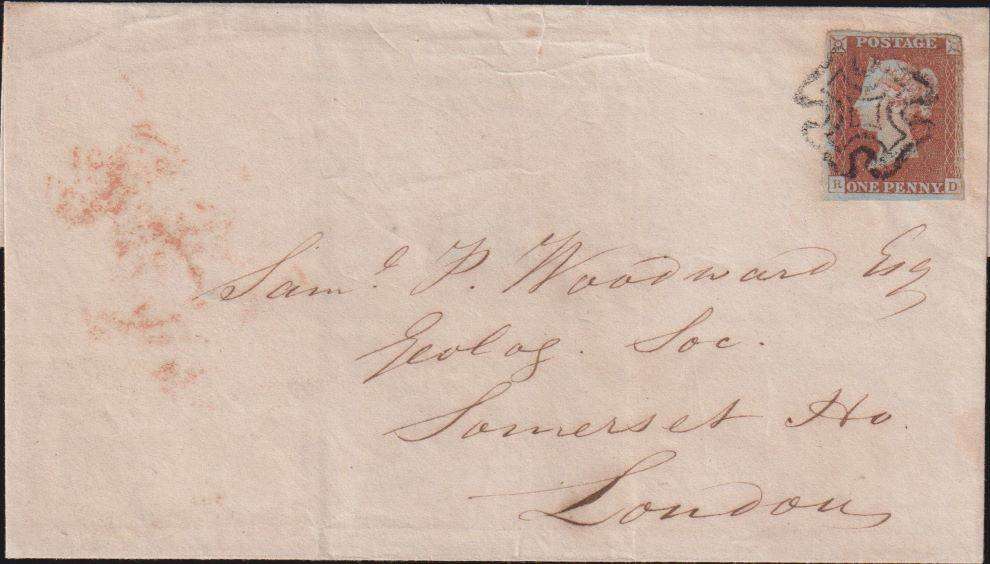 POSTAGE
R ONE PENNY D
Saml P. Woodward Esq
Geolog. Soc.
Somerset Ho.
London